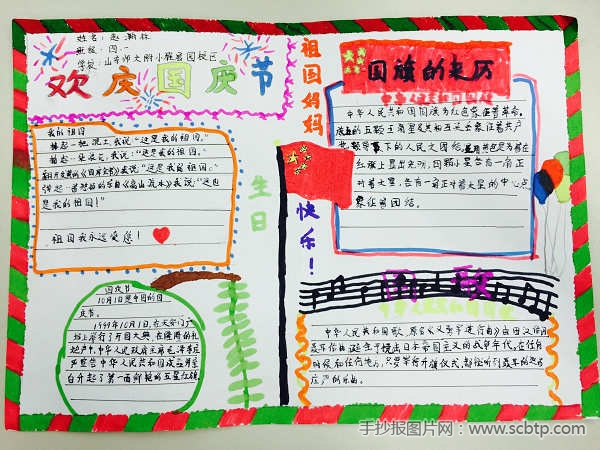 姓名：赵
班级：四.一
学校：山东师大附小雅居园校区
欢庆国庆节
我的祖国
捧起一把泥土，我说“这是我的祖国。”
掬起一朵浪花，我说：“这是我的祖国。”
翻开发黄的《四库全书》我说“这是我的祖国。”
弹起一首悠扬的乐曲《高山流水》我说：“这也
是我的祖国！”
祖国我永远爱您！
国庆节
10月1日是中国的国
庆节。
1949年10月1日，在天安门广
场上举行了开国大典，在隆隆的礼
炮声中，中华人民政府主席毛泽东庄
严宣告中华人民共和国成立并亲
自升起了第一面鲜艳的五星红旗。
祖国妈妈
生日
快乐！
国旗的来历
中华人民共和国国旗为红色象征着革命。
旗面的五颗五角星及其相互关系象征着共产
党领导下的人民大团结，
在红旗上显出光明，四颗小星各有一角正
对着大星，各有一角正对着大星的中心点
象征着团结。
国歌
中华人民共和国国歌
中华人民共和国歌 原名《义勇军进行曲》由田汉作词
聂耳作曲，诞生于抗击日本帝国主义的战争年代。在任何
时候和任何地方，只要举行升旗仪式，都能听到
庄严的乐曲。
手抄报图片网：www.scbtp.com